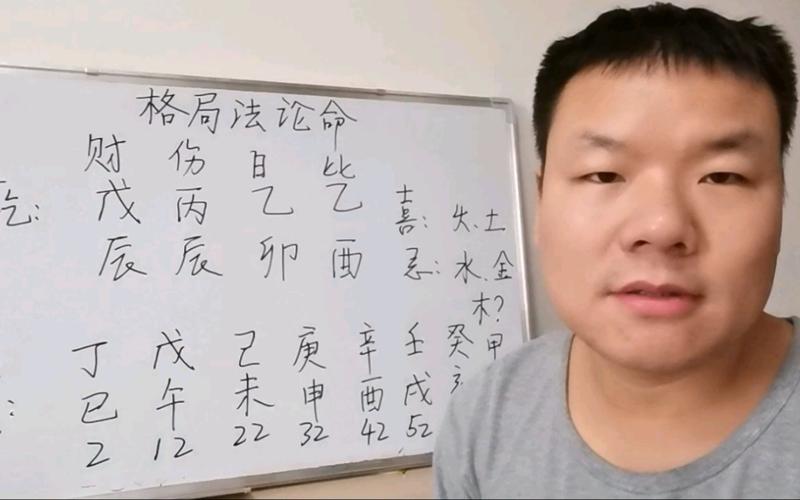 格局法论命
财 伤 日 比
乾: 戊 丙 乙 乙
辰 辰 卯 酉
喜: 火、土
忌: 水、金
木?
丁 戊 己 庚 辛 壬 癸 甲
: 巳 午 未 申 酉 戌
2 12 22 32 42 52